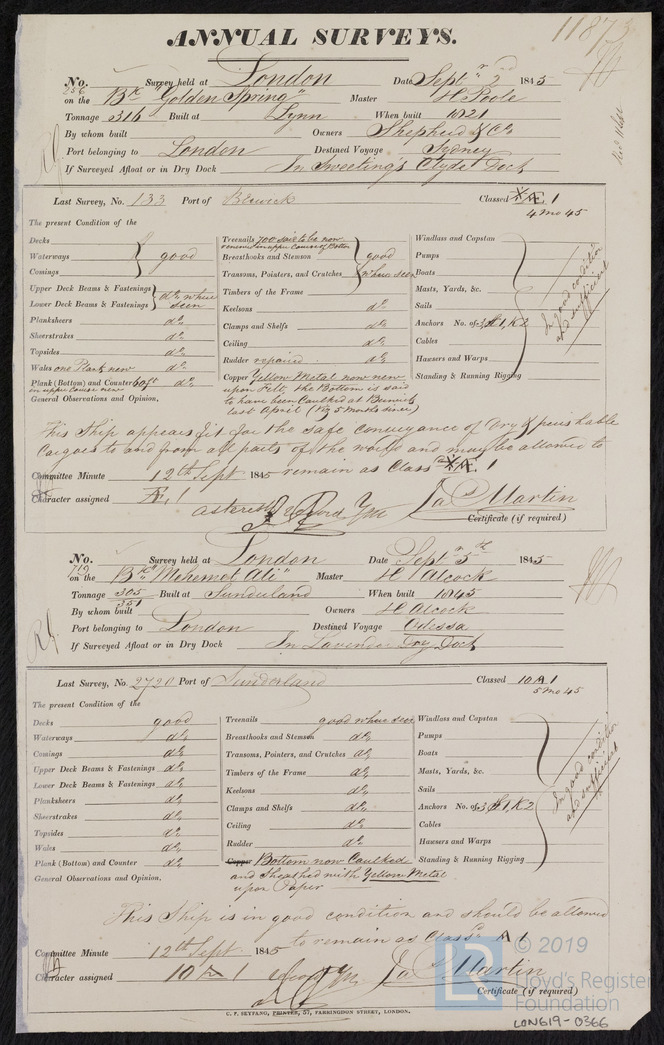 ANNUAL SURVEYS.
11873
No. 256 Survey held at London Date Septr 2nd 1845
on the Bk "Golden Spring" Master H Poole
Tonnage 316 Built at Lynn When built 1021
By whom built Owners Shepherd & Co
Port belonging to London Destined Voyage Sydney
If Surveyed Afloat or in Dry Dock In Sweeting's Clyde Dock
Last Survey, No. 133 Port of Berwick Classed Æ 1
4 mo 45
The present Condition of the
Decks
Waterways good
Comings
Upper Deck Beams & Fastenings do where
Lower Deck Beams & Fastenings seen
Planksheers do
Sheerstrakes do
Topsides do
Wales one Plank new do
Plank (Bottom) and Counter 60ft do
in upper course new
General Observations and Opinion,
Treenails 700 said to be now
renewed in upper course of Bottom
Breasthooks and Stemson good
Transoms, Pointers, and Crutches where seen
Timbers of the Frame
Keelsons do
Clamps and Shelfs do
Ceiling do
Rudder repaired do
Copper Yellow Metal now new
upon Felt, the Bottom is said
to have been Caulked at Berwick
last April (Viz 5 Months since)
Windlass and Capstan
Pumps
Boats
Masts, Yards, &c.
Sails
Anchors No. of 3, S 1, K 2
Cables
Hawsers and Warps
Standing & Running Rigging
In good condition
and sufficient
This Ship appears fit for the safe conveyance of Dry & perishable
Cargoes to and from all parts of the world and may be allowed to
Committee Minute 12th Sept 1845 remain as Class'd Æ 1
Character assigned Æ 1
Jas Martin
Certificate (if required)
No. 719 Survey held at London Date Septr 5th 1845
on the Bk "Mehemet Ali" Master H Alcock
Tonnage 305 Built at Sunderland When built 1045
351
By whom built Owners H Alcock
Port belonging to London Destined Voyage Odessa
If Surveyed Afloat or in Dry Dock In Lavender Dry Dock
Last Survey, No. 2720 Port of Sunderland Classed 10 A 1
5 mo 45
The present Condition of the
Decks good
Waterways do
Comings do
Upper Deck Beams & Fastenings do
Lower Deck Beams & Fastenings do
Planksheers do
Sheerstrakes do
Topsides do
Wales do
Plank (Bottom) and Counter do
General Observations and Opinion,
Treenails good where seen
Breasthooks and Stemson do
Transoms, Pointers, and Crutches do
Timbers of the Frame do
Keelsons do
Clamps and Shelfs do
Ceiling do
Rudder do
Copper Bottom now Caulked
and Sheathed with Yellow Metal
upon Paper
Windlass and Capstan
Pumps
Boats
Masts, Yards, &c.
Sails
Anchors No. of 3, S 1, K 2
Cables
Hawsers and Warps
Standing & Running Rigging
In good condition
and sufficient
This Ship is in good condition and should be allowed
to remain as Class'd A 1
Committee Minute 12th Sept 1845
Character assigned 10 A 1
Jas Martin
Certificate (if required)
U. P. SEYFANG, PRINTER, 57, FARRINGDON STREET, LONDON.
© 2019
LR
Lloyd's Register
Foundation
LON619-0366